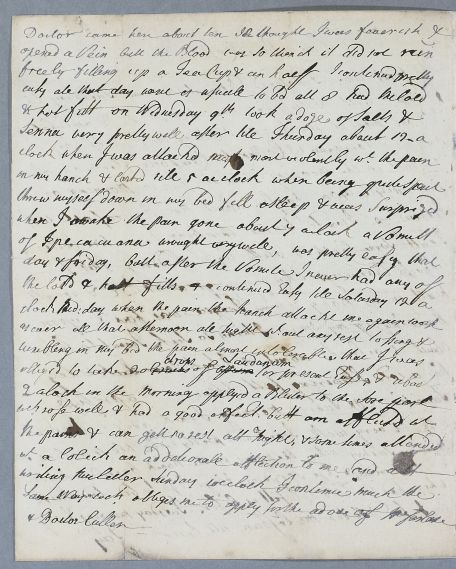 Doctor came here about ten He thought I was feaverish &
opened a Vein but the Blood was so thick it did not run
freely filling up a Tea Cup & an half I continued pretty
easy all that day went to bed att 8 had the cold
& hot fitt on Wednesday 9th took a doze of Salts &
Senna very pretty well after till Thursday about 12 a
clock when I was attackd most violently wt the pain
in my hanch & lasted till 5 a clock when being quite spent
threw myself down in my bed fell asleep & was Surprized
when I awake the pain gone about 7 a clock a Vomitt
of Ipecacuana wrought very well, was pretty easy that
day & friday, but after the Vomite I never had any of
the cold & hott fitts & continued Easy till Saturday 12 a
clock Mid:day when the pain the hanch attackt me again
& ever all that afternoon all night without any rest tossing &
tumbling in my bed the pain almost Intolerable that I was
drops Laudanum
oblidged to take for present
2 a clock in the morning applyd a Blister to the sore part
which rose well & had a good effect butt am afflicted wt
the pains & can gett no rest att night, & some times attended
wt a Colick an additionale affliction to me and att
writing this Letter Sunday 10 a clock I continue much the
same way which obliges me to apply for the advice of
& Doctor Cullen